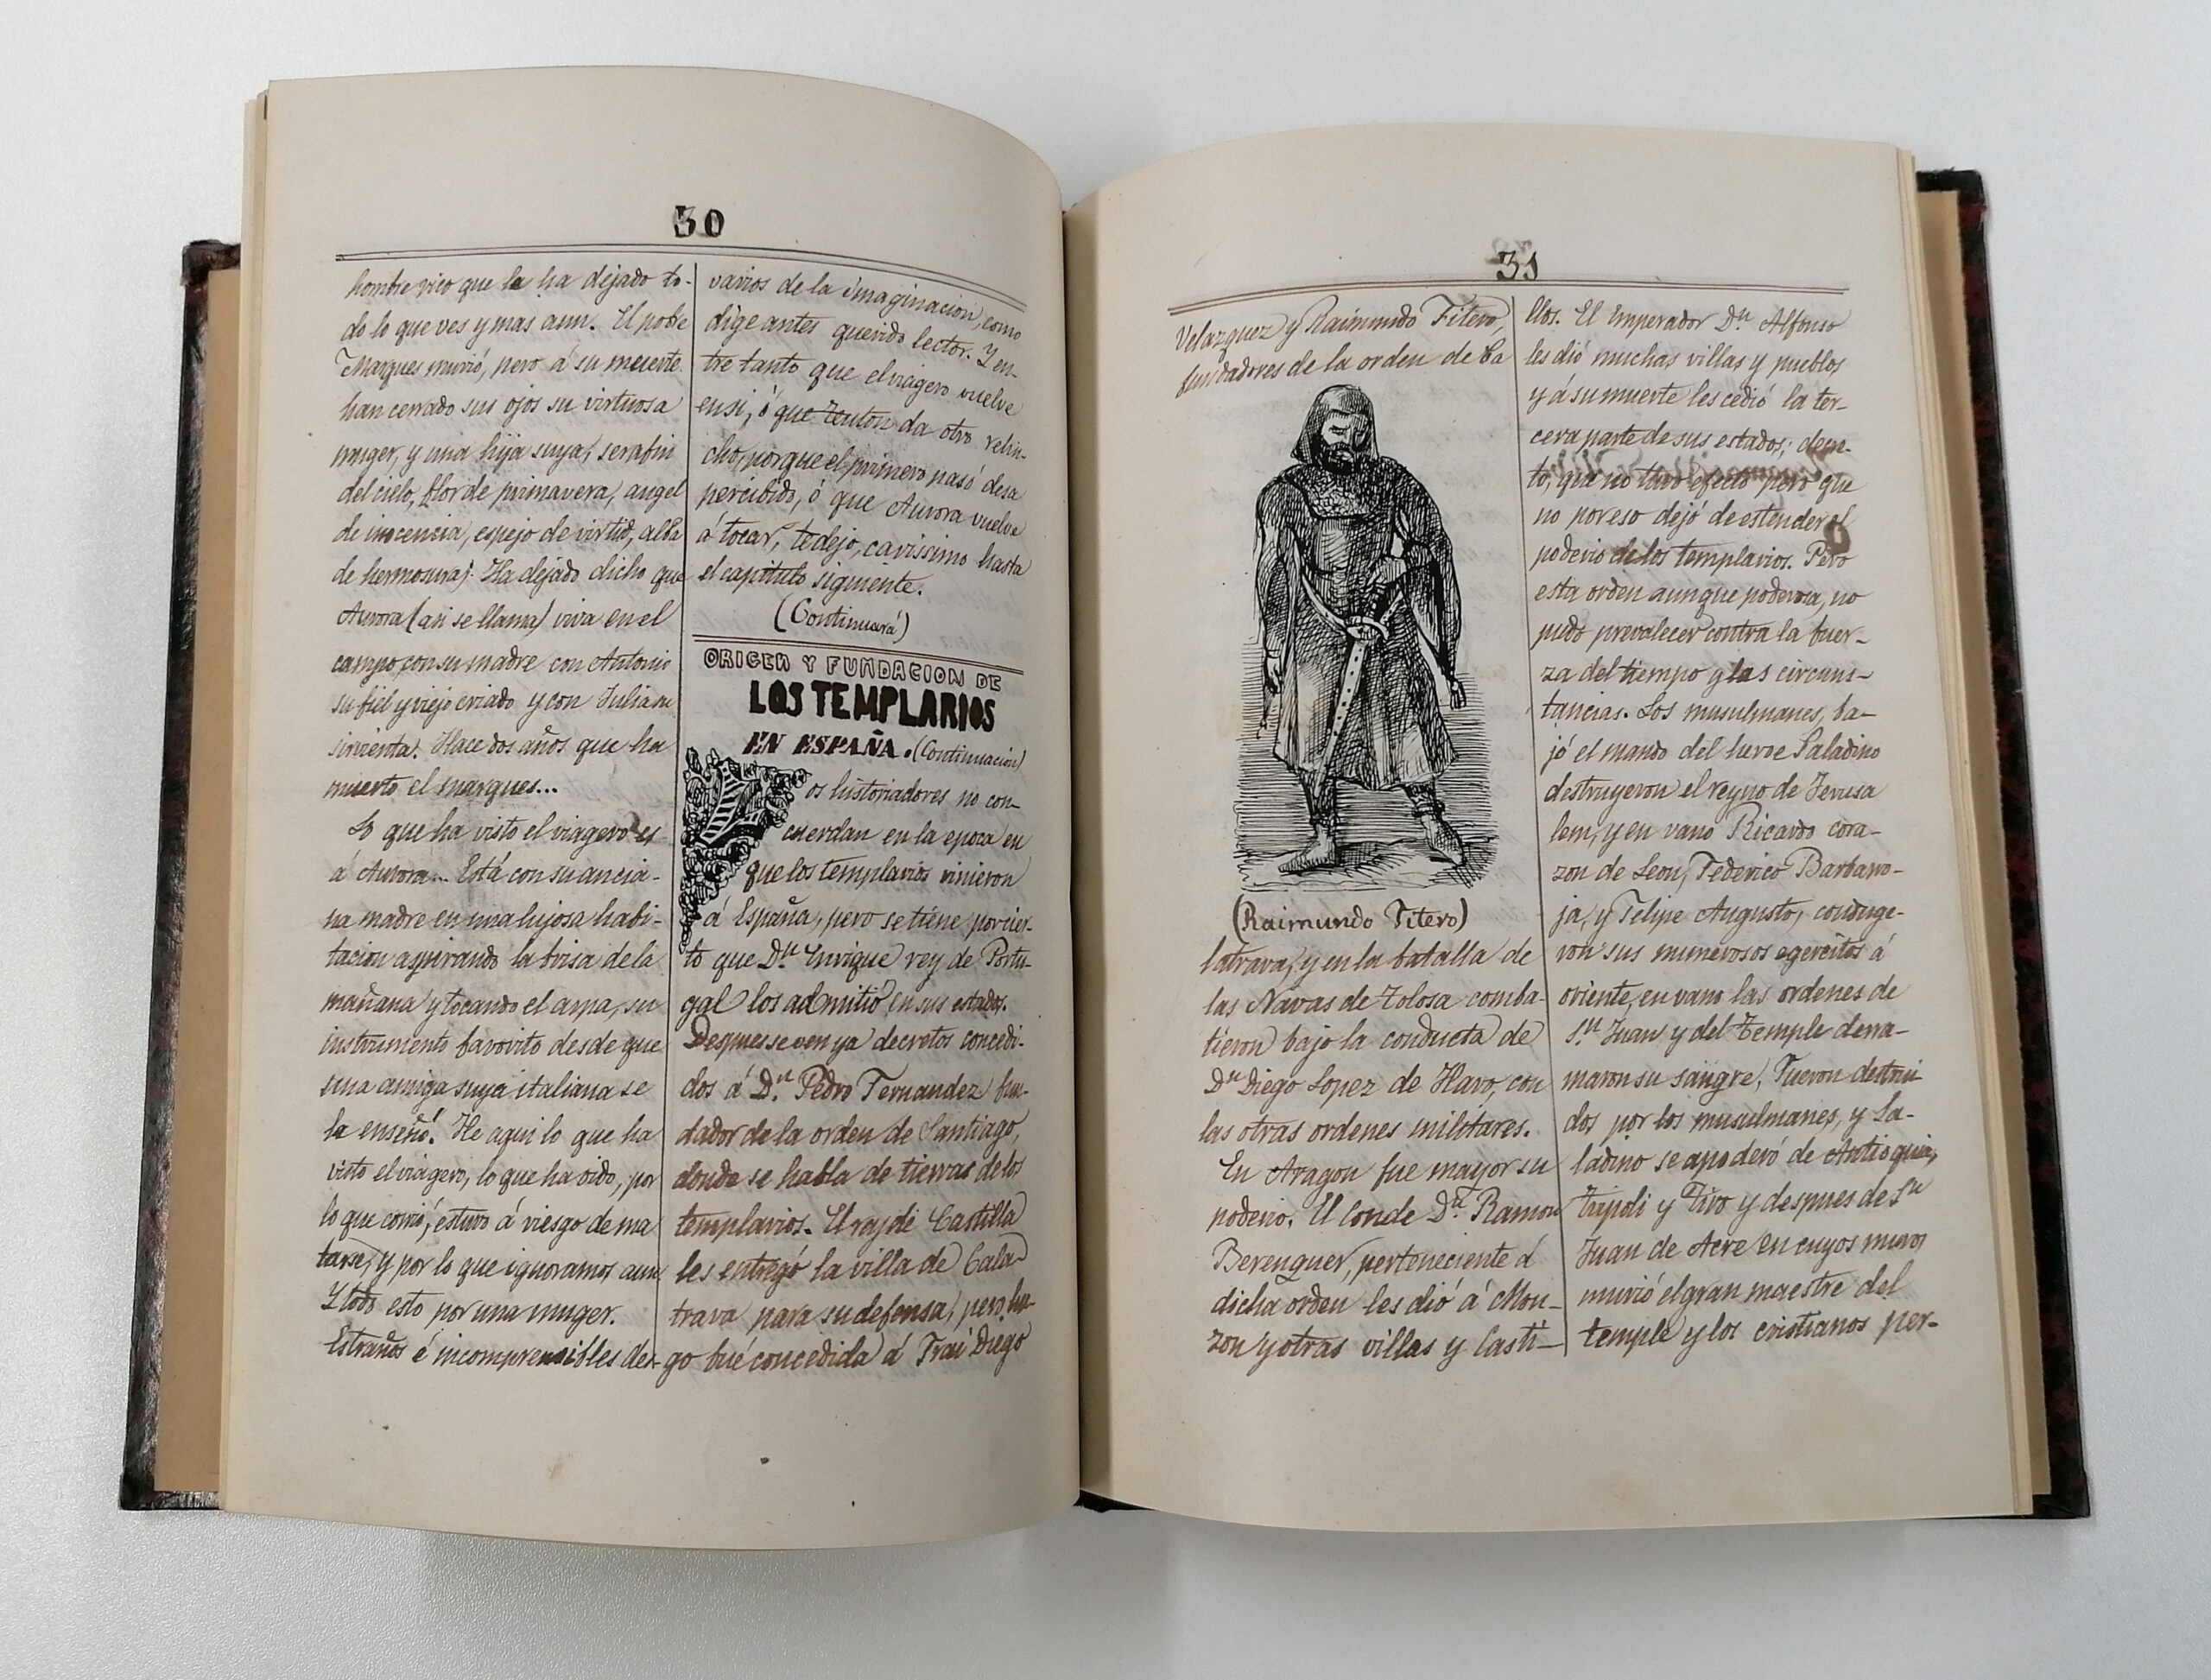 30
hombre rico que la ha dejado to-
do lo que ves y mas aun. El pobre
Marques murió, pero á su muerte
han cerrado sus ojos su virtuosa
muger, y una hija suya, serafin
del cielo, flor de primavera, angel
de inocencia, espejo de virtud, alba
de hermosura. Ha dejado dicho que
Aurora (asi se llama) viva en el
campo con su madre con Antonio
su fiel y viejo criado y con Julia su
sirvienta. Hace dos años que ha
muerto el marques...
Lo que ha visto el viagero es
á Aurora... Está con su ancia-
na madre en una lujosa habi-
tacion aspirando la brisa de la
mañana y tocando el arpa, su
instrumento favorito desde que
una amiga suya italiana se
la enseñó. He aqui lo que ha
visto el viagero, lo que ha oido, por
lo que corrió, estuvo á riesgo de ma
tarse, y por lo que ignoramos aun
Y todo esto por una muger.
Estraños é incomprensibles des-
varios de la imaginacion, como
dige antes querido lector. Y en-
tre tanto que el viagero vuelve
en si, ó que Teuton da otro relin-
cho, porque el primero pasó desa
percibido, ó que Aurora vuelve
á tocar, te dejo, carissimo hasta
el capitulo siguiente.
(Continuará)
ORIGEN Y FUNDACION DE
LOS TEMPLARIOS
EN ESPAÑA. (Continuacion)
Los historiadores no con-
cuerdan en la epoca en
que los templarios vinieron
á España, pero se tiene por cier-
to que Dn. Enrique rey de Portu-
gal los admitió en sus estados.
Despues se ven ya decretos concedi-
dos á Dn. Pedro Fernandez fun-
dador de la orden de Santiago,
donde se habla de tierras de los
templarios. El rey de Castilla
les entregó la villa de Cala
trava para su defensa, pero lue-
go fué concedida á Frai Diego
31
Velazquez y Raimundo Fitero,
fundadores de la orden de Ca
(Raimundo Fitero)
latrava, y en la batalla de
las Navas de Tolosa comba-
tieron bajo la conducta de
Dn Diego Lopez de Haro, con
las otras ordenes militares.
En Aragon fue mayor su
poderio. El Conde Dn. Ramon
Berenguer, perteneciente á
dicha orden les dió á Mon-
zon y otras villas y Casti-
llos. El Emperador Dn Alfonso
les dió muchas villas y pueblos
y á su muerte les cedió la ter-
cera parte de sus estados; decre-
to, que no tuvo efecto pero que
no por eso dejó de estender el
poderio de los templarios. Pero
esta orden aunque poderosa, no
pudo prevalecer contra la fuer-
za del tiempo y las circuns-
tancias. Los musulmanes, ba-
jó el mando del heroe Saladino
destruyeron el reyno de Jerusa
lem, y en vano Ricardo cora-
zon de Leon, Federico Barbarro-
ja, y Felipe Augusto, conduge-
ron sus numerosos egercitos á
oriente, en vano las ordenes de
Sn Juan y del Temple derra-
maron su sangre, Fueron destrui
dos por los musulmanes, y Sa-
ladino se apoderó de Antioquia,
Tripoli y Tiro y despues de Sn
Juan de Acre en cuyos muros
murió el gran maestre del
temple y los cristianos per-